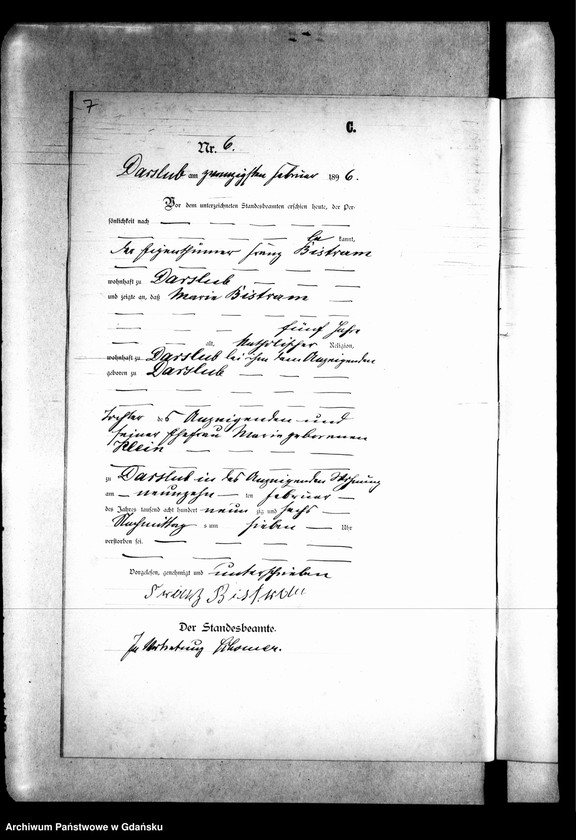 7
C.
Nr. 6.
Darslub am zwanzigsten Februar 1896.
Vor dem unterzeichneten Standesbeamten erschien heute, der Per-
sönlichkeit nach
be kannt,
der Eigenthümer Franz Bistram
wohnhaft zu Darslub
und zeigte an, daß Marie Bistram
fünf Jahre
alt, katholischer Religion,
wohnhaft zu Darslub bei ihm dem Anzeigenden
geboren zu Darslub
Tochter des Anzeigenden und
seiner Ehefrau Marie geborenen
Klein
zu Darslub in des Anzeigenden Wohnung
am neunzehn ten Februar
des Jahres tausend acht hundert neun zig und sechs
Nachmittag s um sieben Uhr
verstorben sei.
Vorgelesen, genehmigt und unterschrieben
Franz Bistram
Der Standesbeamte.
In Vertretung
Archiwum Państwowe w Gdańsku